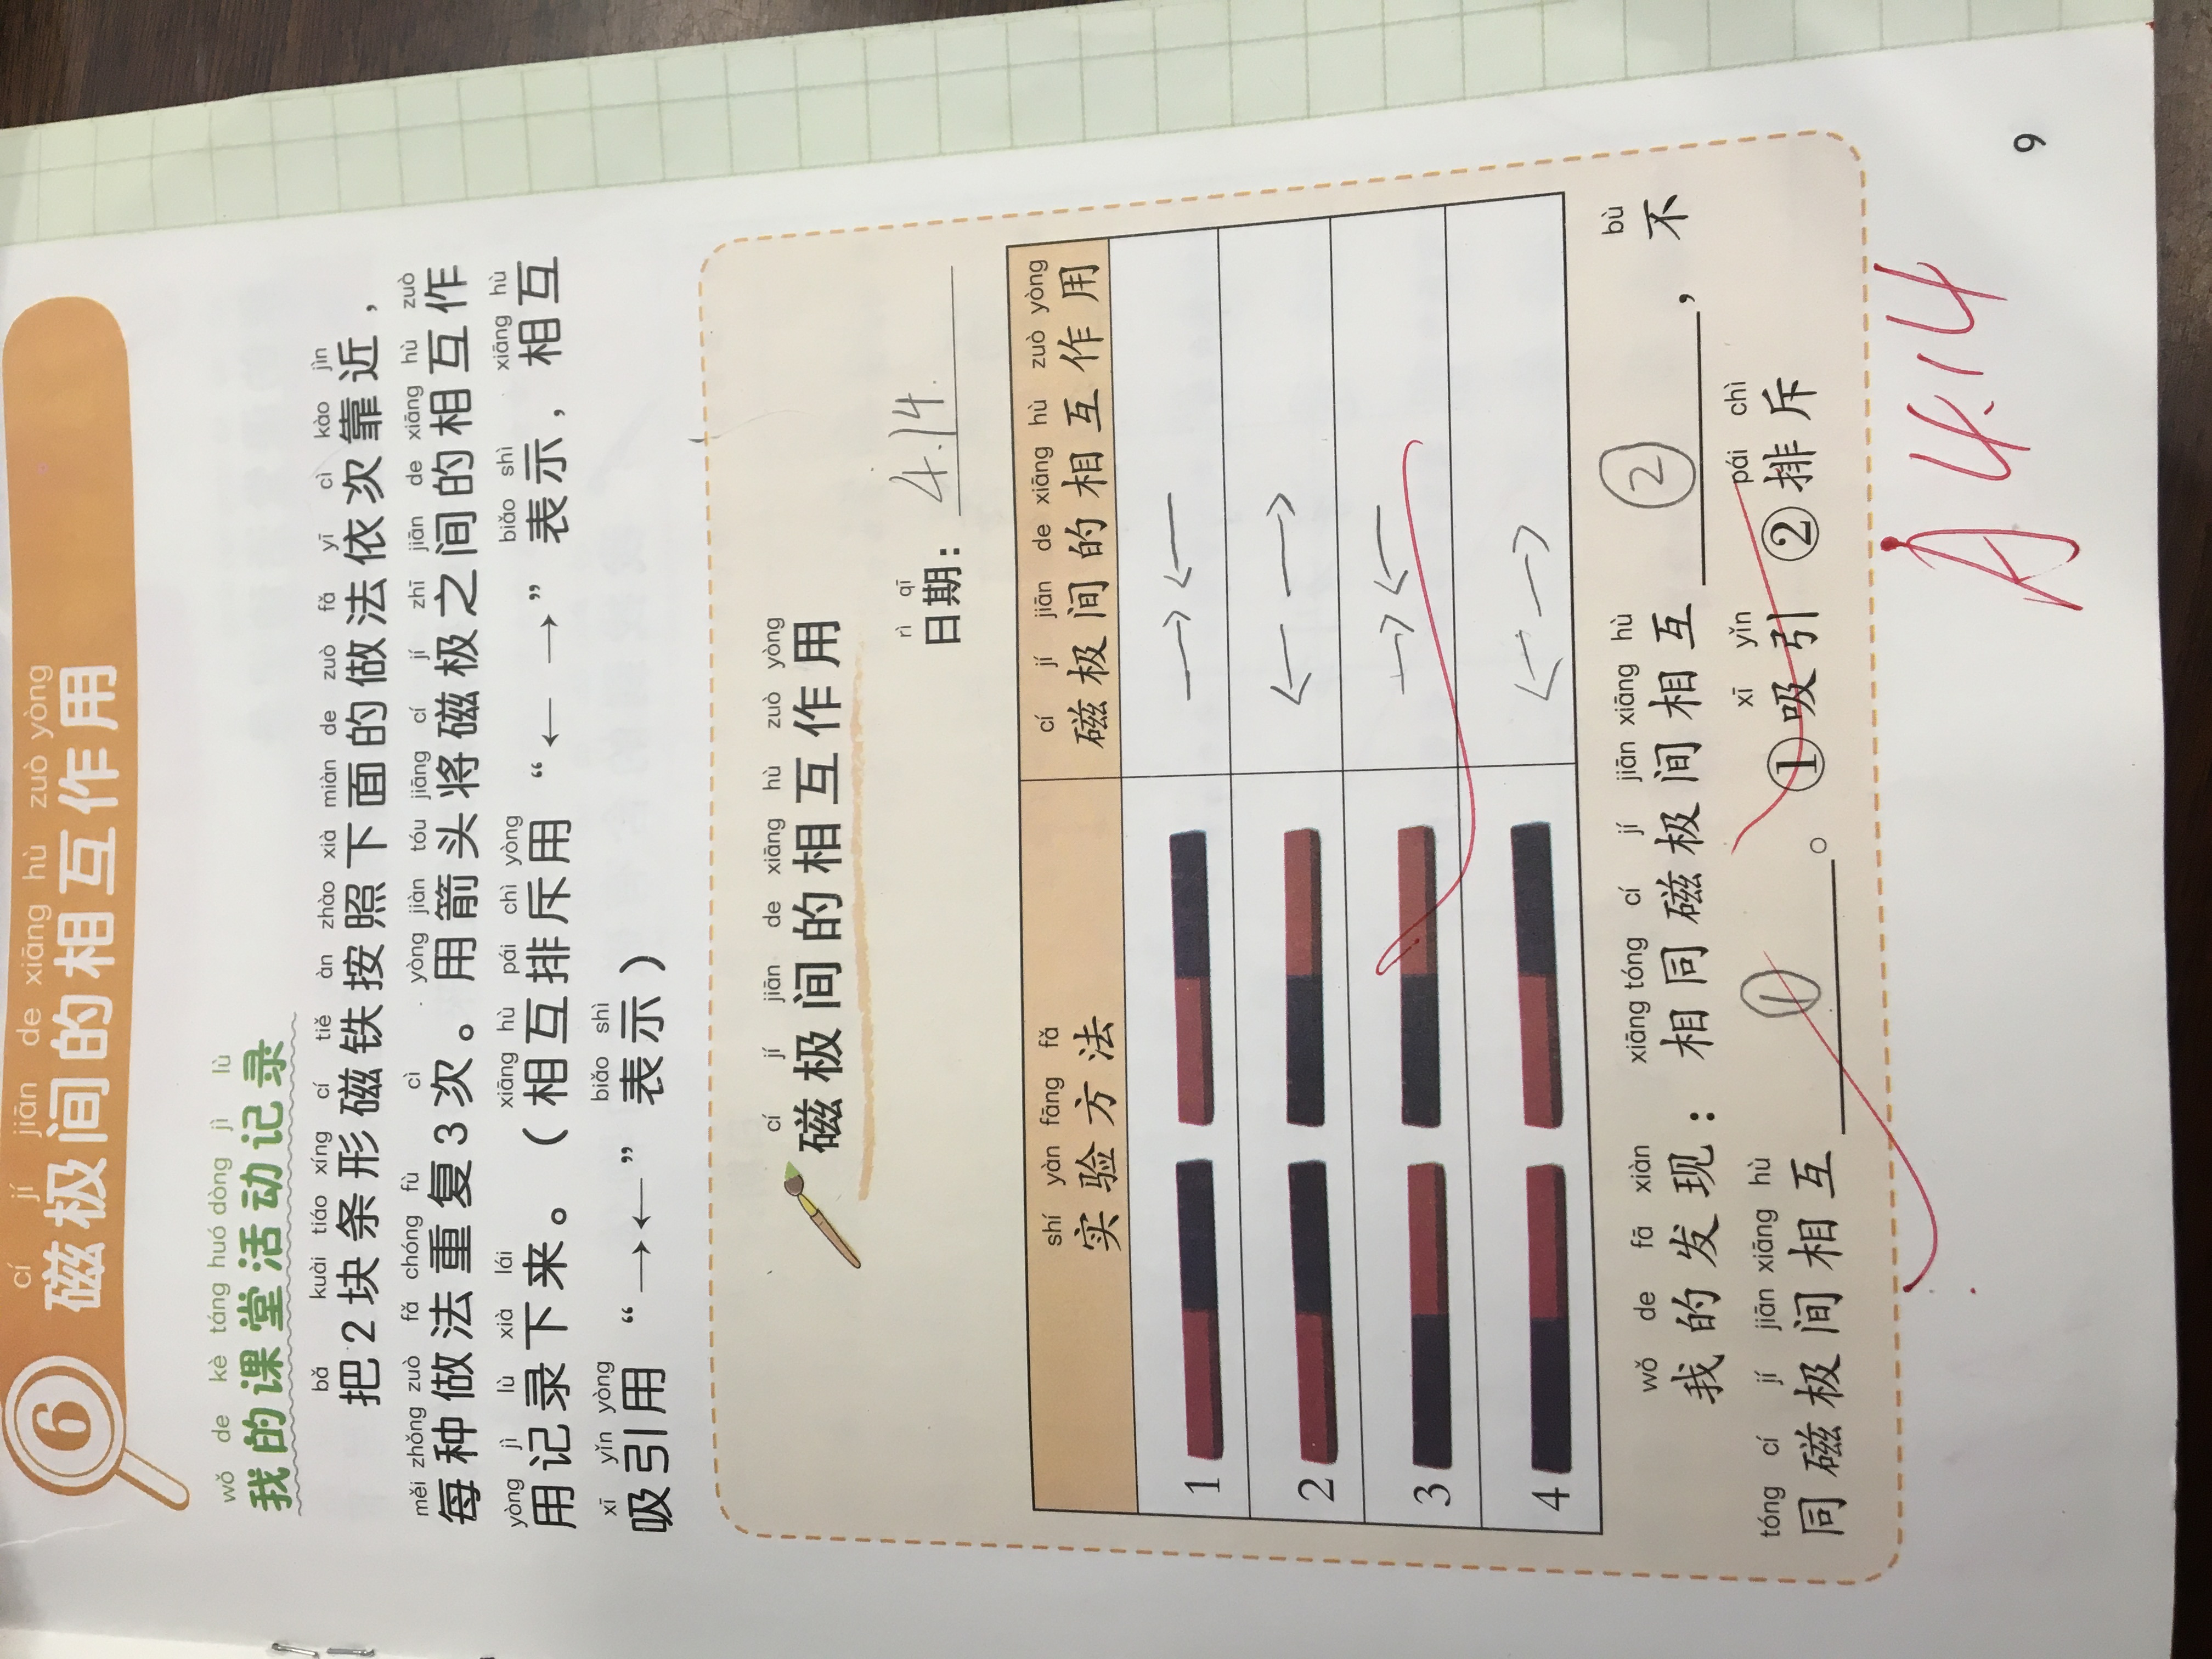 6
cí jí jiān de xiāng hù zuò yòng
磁极间的相互作用
wǒ de kè táng huó dòng jì lù
我的课堂活动记录
bǎ kuài tiáo xíng cí tiě àn zhào xià miàn de zuò fǎ yī cì kào jìn
把2块条形磁铁按照下面的做法依次靠近，
měi zhǒng zuò fǎ chóng fù cì yòng jiàn tóu jiāng cí jí zhī jiān de xiāng hù zuò
每种做法重复3次。用箭头将磁极之间的相互作
yòng jì lù xià lái xiāng hù pái chì yòng biǎo shì xiāng hù
用记录下来。（相互排斥用“← →”表示，相互
xī yǐn yòng biǎo shì
吸引用“→←”表示）
cí jí jiān de xiāng hù zuò yòng
磁极间的相互作用
rì qī
日期：4.14.
shí yàn fāng fǎ cí jí jiān de xiāng hù zuò yòng
实验方法 磁极间的相互作用
1 → ←
2 ← →
3 → ←
4 ← →
wǒ de fā xiàn xiāng tóng cí jí jiān xiāng hù bù
我的发现：相同磁极间相互②，不
tóng cí jí jiān xiāng hù xī yǐn pái chì
同磁极间相互①。①吸引 ②排斥
A 4.14
9